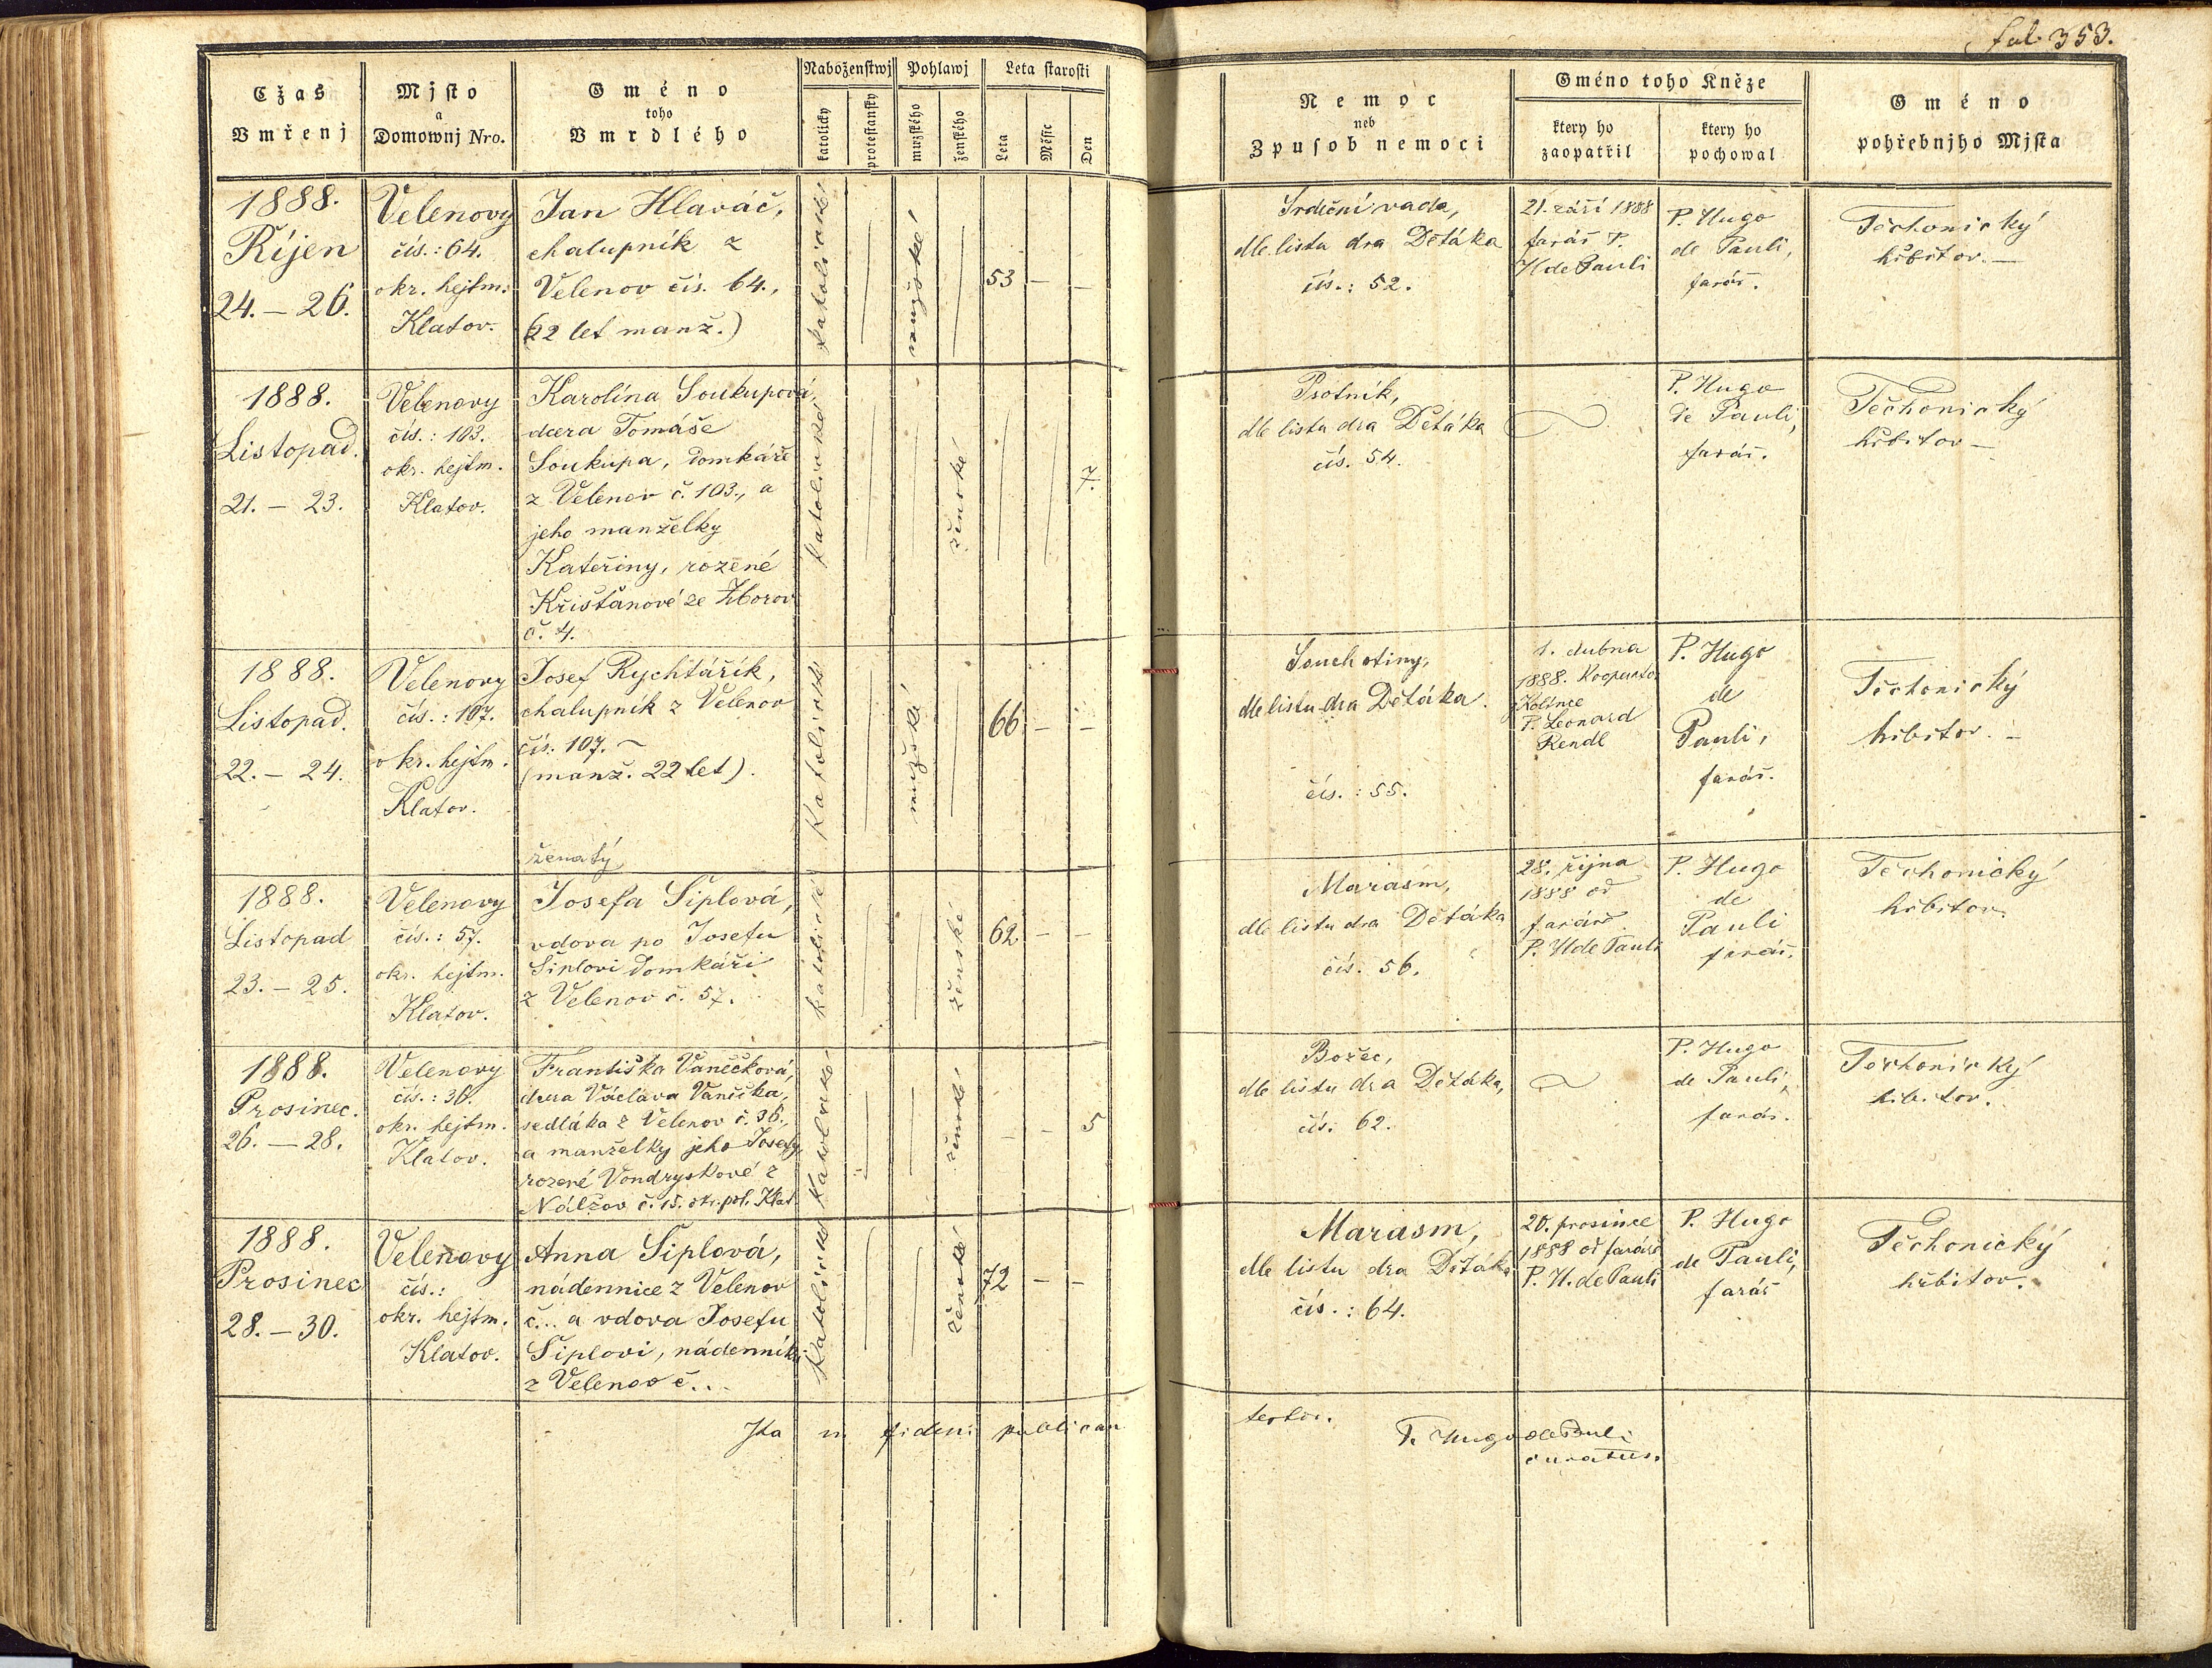 fol. 353.
Cžas
Vmřenj
Mjſto
a
Domownj Nro.
Gméno
toho
Vmrdlého
Náboženſtwj
katolický
proteſtanſký
Pohlawj
mužſkého
ženſkého
Leta ſtaroſti
Leta
Měſýc
Den
Nemoc
neb
Zpuſob nemoci
Gméno toho Kněze
který ho
zaopatřil
který ho
pochowal
Gméno
pohřebnjho Mjſta
1888.
Říjen
24. – 26.
Velenovy
čís.: 64.
okr. hejtm.
Klatov.
Jan Hlaváč,
chalupník z
Velenov čís. 64.,
(22 let manž.)
katolické
mužské
53 – –
Srdeční vada,
dle listu dra Dětáka
čís.: 52.
21. září 1888
farář P.
H de Pauli
P. Hugo
de Pauli,
farář.
Těchonický
hřbitov. –
1888.
Listopad.
21. – 23.
Velenovy
čís.: 103.
okr. hejtm.
Klatov.
Karolína Soukupová,
dcera Tomáše
Soukupa, domkáře
z Velenov č. 103., a
jeho manželky
Kateřiny, rozené
Křišťanové ze Zborov
č. 4.
katolické
ženské
7.
Psotník,
dle listu dra Dětáka
čís. 54.
P. Hugo
de Pauli,
farář.
Těchonický
hřbitov –
1888.
Listopad.
22. – 24.
Velenovy
čís.: 107.
okr. hejtm.
Klatov.
Josef Rychtářík,
chalupník z Velenov
čís. 107. ~
(manž. 22 let).
ženatý
Katolické
mužské
66 – –
Souchotiny,
dle listu dra Dětáka.
čís.: 55.
1. dubna
1888. Kooperator
P. Leonard
Rendl
P. Hugo
de
Pauli,
farář.
Těchonický
hřbitov. –
1888.
Listopad
23. – 25.
Velenovy
čís.: 57.
okr. hejtm.
Klatov.
Josefa Šiplová,
vdova po Josefu
Šiplovi domkáři
z Velenov č. 57.
katolické
ženské
62 – –
Marasm,
dle listu dra Dětáka
čís. 56.
28. října
1888 od
faráře
P. H de Pauli
P. Hugo
de
Pauli
farář.
Těchonický
hřbitov.
1888.
Prosinec.
26. – 28.
Velenovy
čís.: 36.
okr. hejtm.
Klatov.
Františka Vaněčková,
dcera Václava Vaněčka,
sedláka z Velenov č. 36.,
a manželky jeho Josefy,
rozené Vondryskové z
Nálžov č. 15. okr. pol. Klat
Katolické
ženské
– – 5
Božec,
dle listu dra Dětáka,
čís. 62.
P. Hugo
de Pauli,
farář.
Těchonický
hřbitov.
1888.
Prosinec
28. – 30.
Velenovy
čís.:
okr. hejtm.
Klatov.
Anna Šiplová,
nádennice z Velenov
č... a vdova Josefu
Šiplovi, nádenníku
z Velenov č...
Katolické
ženské
72 – –
Marasm,
dle listu dra Dětáka
čís.: 64.
20. prosince
1888 od faráře
P. H. de Pauli
P. Hugo
de Pauli,
farář
Těchonický
hřbitov.
Ita in fidem publicam
testor.
P. Hugo de Pauli
curatus.